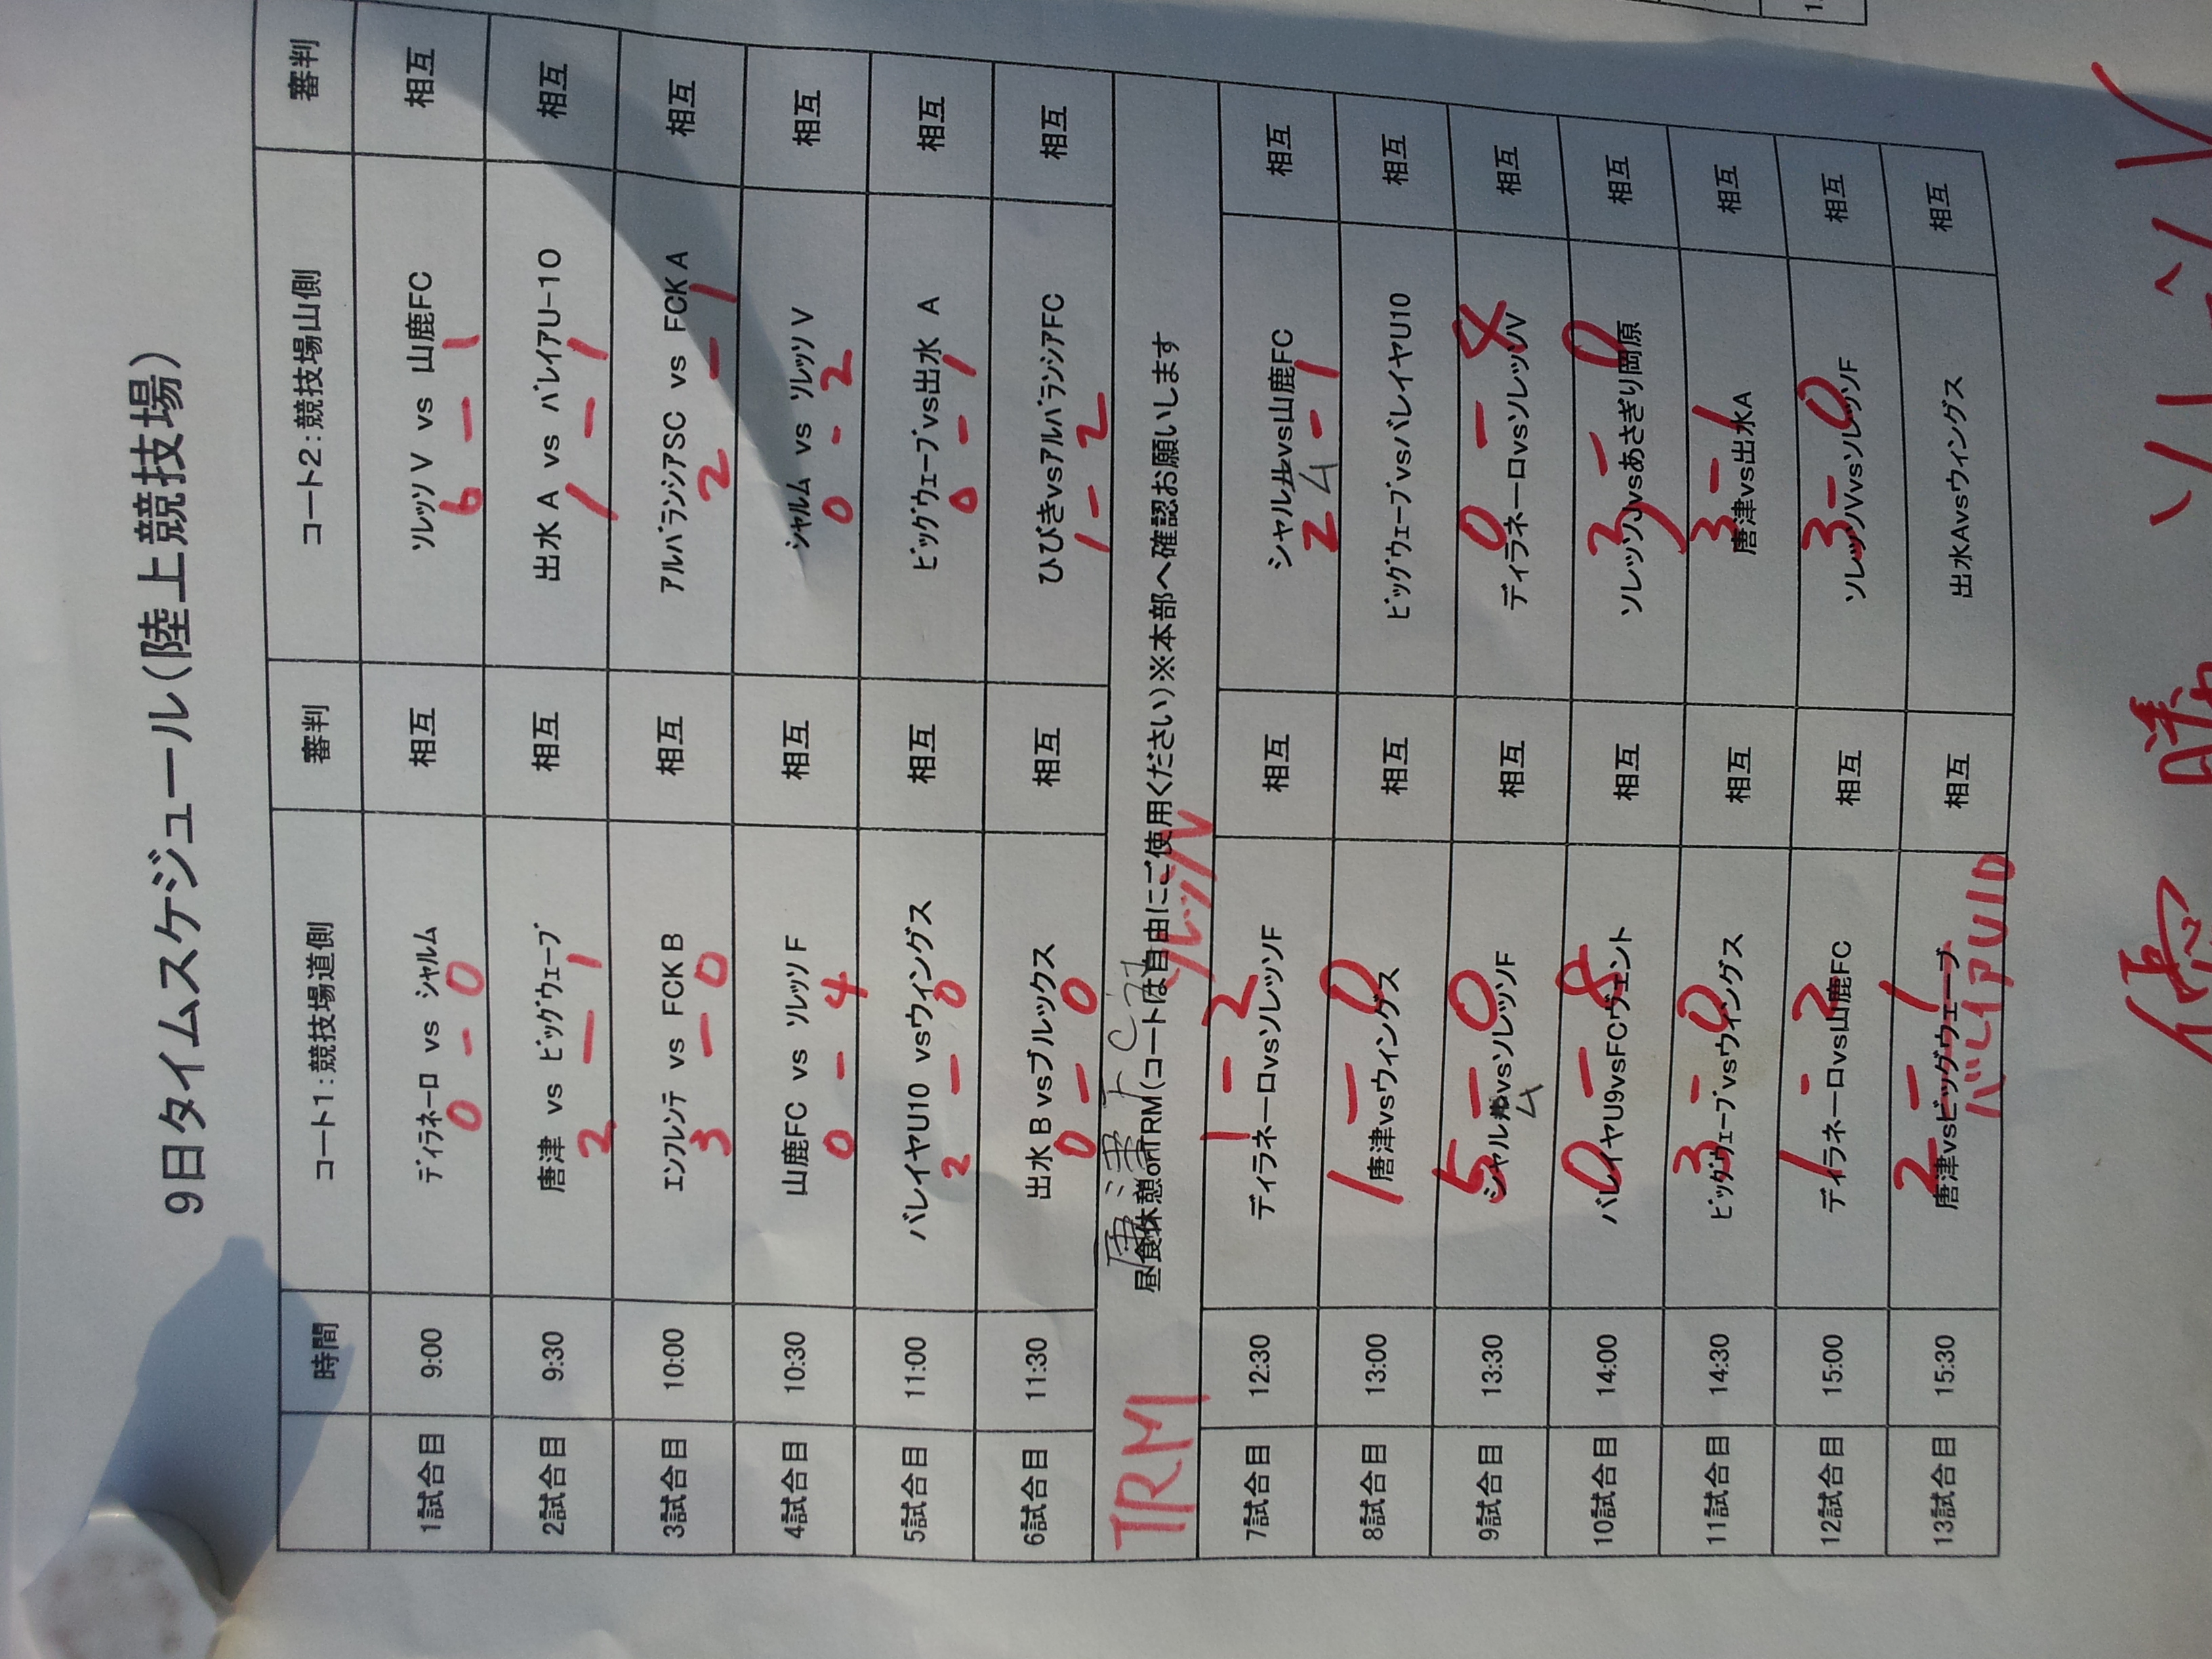 9日タイムスケジュール(陸上競技場)
時間 コート1:競技場道側 審判 コート2:競技場山側 審判
1試合目 9:00 ディラネーロ vs シャルム 相互 ソレッソV vs 山鹿FC 相互
0 - 0 6 - 1
2試合目 9:30 唐津 vs ビッグウェーブ 相互 出水A vs バレイアU-10 相互
2 - 1 1 - 1
3試合目 10:00 エンフレンテ vs FCKB 相互 アルバランシアSC vs FCKA 相互
3 - 0 2 - 1
4試合目 10:30 山鹿FC vs ソレッソF 相互 シャルム vs ソレッソV 相互
0 - 4 0 - 2
5試合目 11:00 バレイヤU10 vsウィングス 相互 ビッグウェーブvs出水 A 相互
2 - 0 0 - 1
6試合目 11:30 出水BvsブルックスC 相互 ひびきvsアルバランシアFC 相互
0 - 0 1 - 2
TRM 昼食休憩orTRM(コートは自由にご使用ください)※本部へ確認お願いします
ソレッソV
7試合目 12:30 ディラネーロvsソレッソF 相互 シャルムvs山鹿FC 相互
1 - 2 2 - 1
8試合目 13:00 唐津vsウィングス 相互 ビッグウェーブvsバレイヤU10 相互
1 - 0
9試合目 13:30 シャルムvsソレッソF 相互 ディラネーロvsソレッソV 相互
5 - 0 0 - 4
10試合目 14:00 バレイヤU9vsFCヴェント 相互 ソレッソJvsあさぎり岡原 相互
0 - 8 3 - 0
11試合目 14:30 ビッグウェーブvsウィングス 相互 唐津vs出水A 相互
3 - 0 3 - 1
12試合目 15:00 ディラネーロvs山鹿FC 相互 ソレッソVvsソレッソF 相互
1 - 2 3 - 0
13試合目 15:30 唐津vsビッグウェーブ 相互 出水Avsウィングス 相互
2 - 1
バレイアU10
優勝 ソレッソV